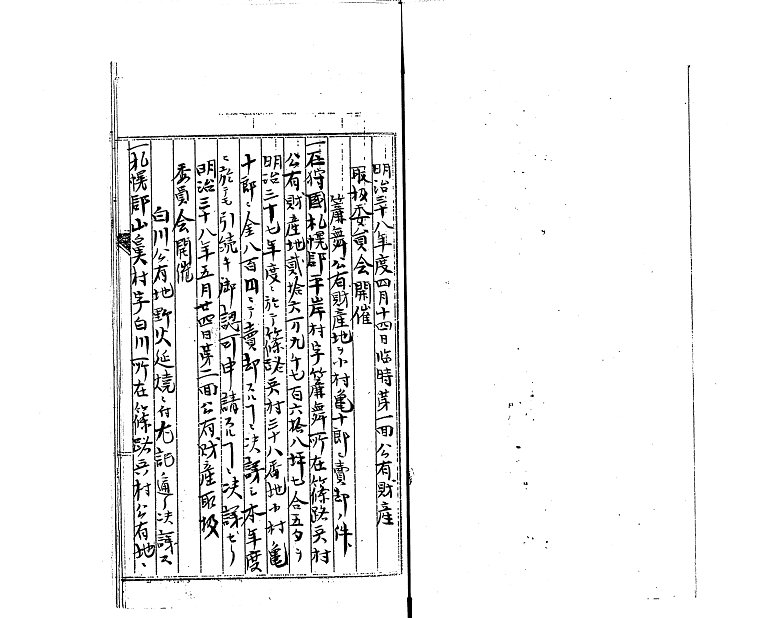 明治三十八年度四月十四日臨時第一回公有財産
取扱委員会開催
簾舞公有財産地ヲ小村亀十郎ニ賣却ノ件
一石狩國札幌郡平岸村字簾舞所在篠路兵村
公有財産地貳拾六万九千七百六拾八坪七合五夕ヲ
明治三十七年度ニ於テ篠路兵村三十八番地小村亀
十郎ニ金八百四ニテ賣却スルヿニ決議シ本年度
ニ於テモ引続キ御認可申請スルヿニ決議セリ
明治三十八年五月廿四日第二回公有財産取扱
委員会開催
白川公有地野火延焼ニ付左記ノ通リ決議ス
一札幌郡山鼻村字白川所在篠路兵村公有地ヘ